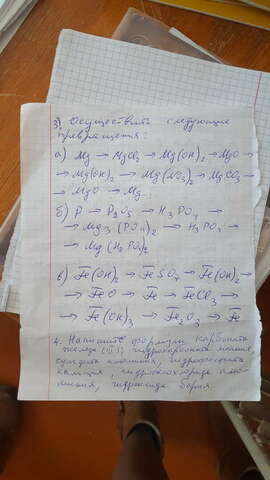 3) Осуществить следующие
превращения:
а) Mg → MgCl₂ → Mg(OH)₂ → MgO →
→ Mg(OH)₂ → Mg(NO₃)₂ → MgCO₃ →
→ MgO → Mg
б) P → P₂O₅ → H₃PO₄ →
→ Mg₃(PO₄)₂ → H₃PO₄ →
→ Mg(H₂PO₄)₂
в) Fe(OH)₂ → FeSO₄ → Fe(OH)₂ →
→ FeO → Fe → FeCl₃ →
→ Fe(OH)₃ → Fe₂O₃ → Fe
4. Напишите формулы карбоната
железа (III), гидрокарбоната
алюминия, гидрофосфата
кальция, гидроксохлорида алю-
миния, гидроксида бария